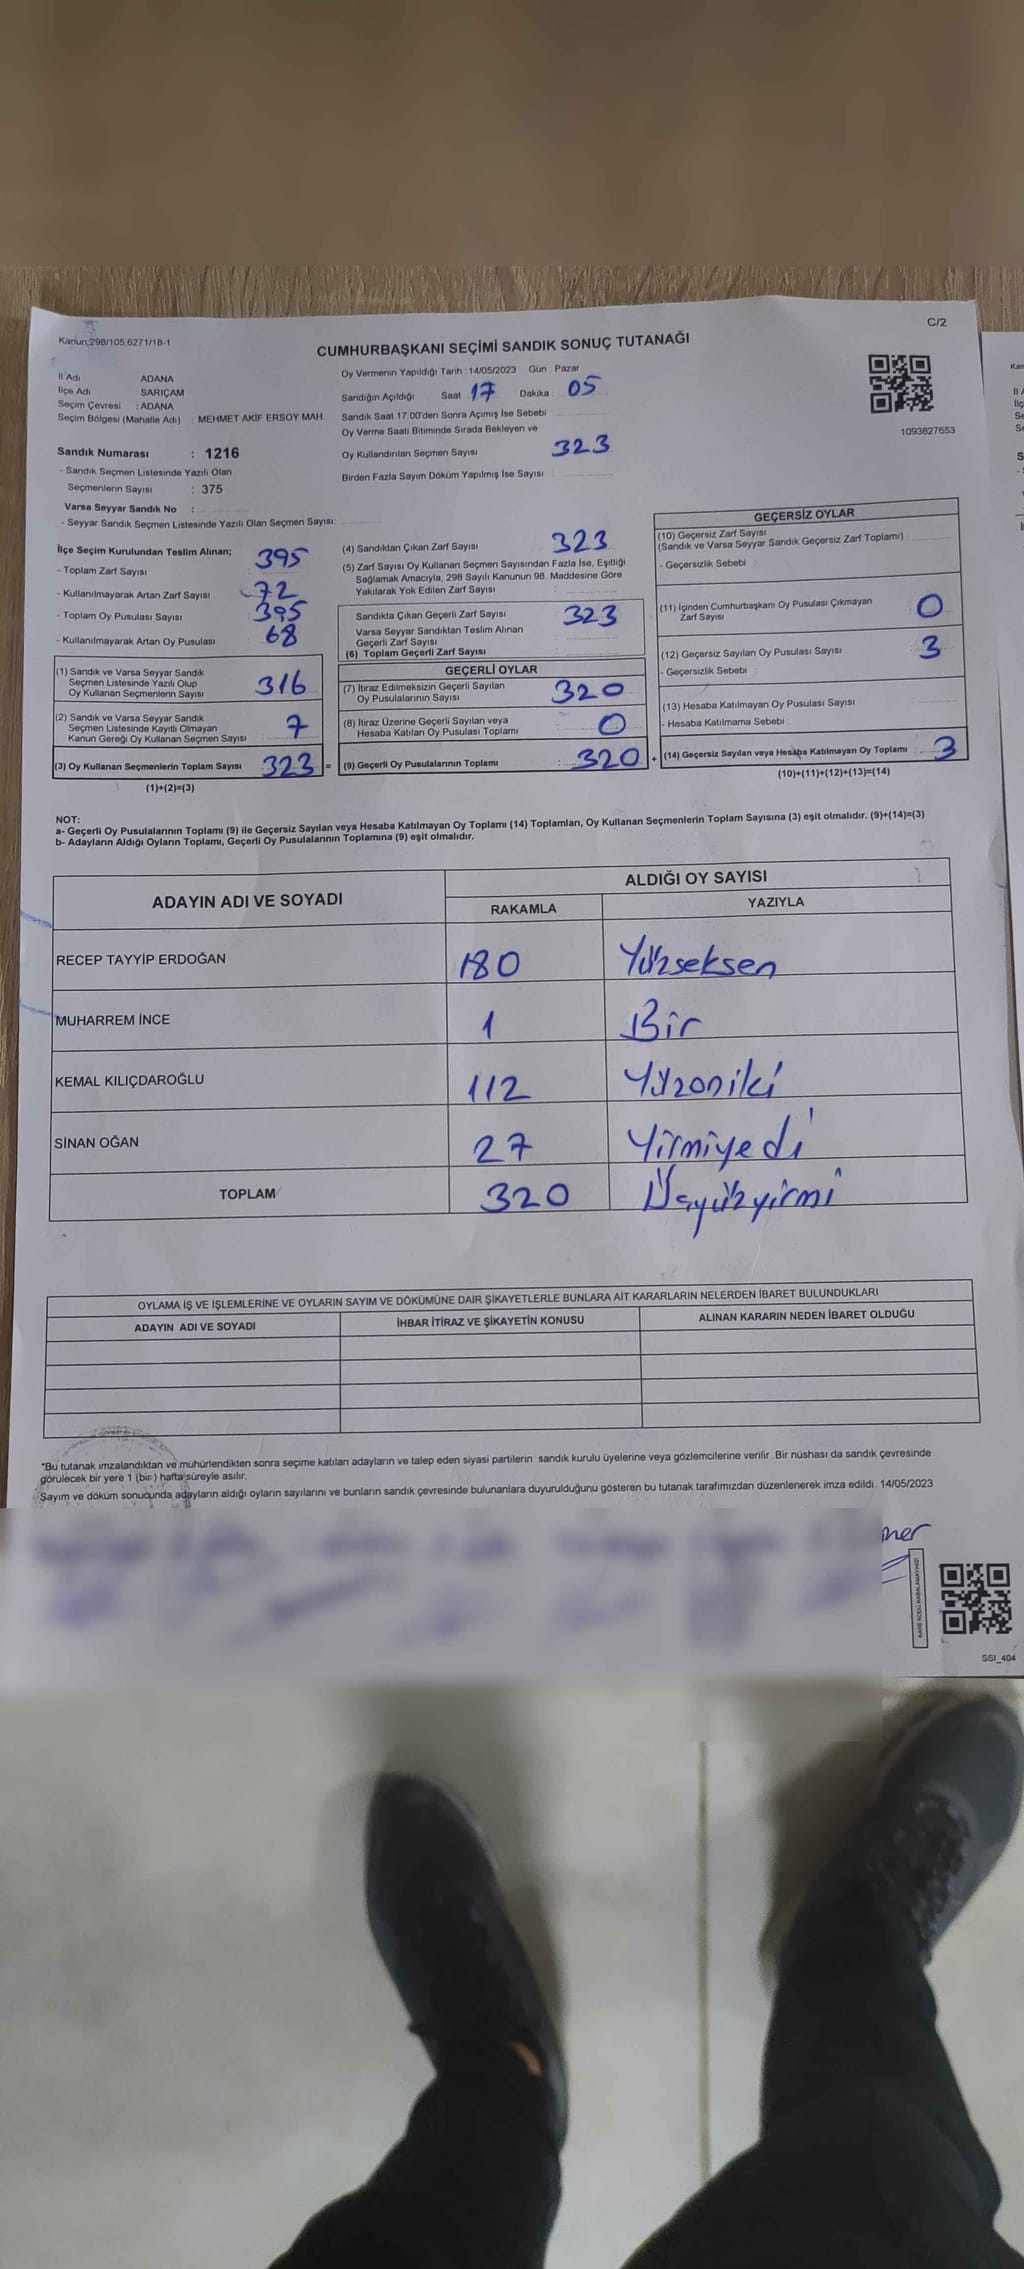 Kanun;298/105,6271/18-1
C/2
CUMHURBAŞKANI SEÇİMİ SANDIK SONUÇ TUTANAĞI
İl Adı ADANA
İlçe Adı SARIÇAM
Seçim Çevresi : ADANA
Seçim Bölgesi (Mahalle Adı) : MEHMET AKİF ERSOY MAH.
Sandık Numarası : 1216
- Sandık Seçmen Listesinde Yazılı Olan
Seçmenlerin Sayısı : 375
Varsa Seyyar Sandık No :
- Seyyar Sandık Seçmen Listesinde Yazılı Olan Seçmen Sayısı:
Oy Vermenin Yapıldığı Tarih : 14/05/2023 Gün : Pazar
Sandığın Açıldığı Saat : 17 Dakika : 05
Sandık Saat 17:00'den Sonra Açımış İse Sebebi
Oy Verme Saati Bitiminde Sırada Bekleyen ve
Oy Kullandırılan Seçmen Sayısı 323
Birden Fazla Sayım Döküm Yapılmış İse Sayısı :
1093827653
İlçe Seçim Kurulundan Teslim Alınan;
- Toplam Zarf Sayısı 395
- Kullanılmayarak Artan Zarf Sayısı 72
- Toplam Oy Pusulası Sayısı 395
- Kullanılmayarak Artan Oy Pusulası 68
(1) Sandık ve Varsa Seyyar Sandık
Seçmen Listesinde Yazılı Olup
Oy Kullanan Seçmenlerin Sayısı 316
(2) Sandık ve Varsa Seyyar Sandık
Seçmen Listesinde Kayıtlı Olmayan
Kanun Gereği Oy Kullanan Seçmen Sayısı 7
(3) Oy Kullanan Seçmenlerin Toplam Sayısı 323 =
(1)+(2)=(3)
(4) Sandıktan Çıkan Zarf Sayısı 323
(5) Zarf Sayısı Oy Kullanan Seçmen Sayısından Fazla İse, Eşitliği
Sağlamak Amacıyla, 298 Sayılı Kanunun 98. Maddesine Göre
Yakılarak Yok Edilen Zarf Sayısı
Sandıkta Çıkan Geçerli Zarf Sayısı 323
Varsa Seyyar Sandıktan Teslim Alınan
Geçerli Zarf Sayısı
(6) Toplam Geçerli Zarf Sayısı
GEÇERLİ OYLAR
(7) İtiraz Edilmeksizin Geçerli Sayılan
Oy Pusulalarının Sayısı 320
(8) İtiraz Üzerine Geçerli Sayılan veya
Hesaba Katılan Oy Pusulası Toplamı 0
(9) Geçerli Oy Pusulalarının Toplamı : 320 +
GEÇERSİZ OYLAR
(10) Geçersiz Zarf Sayısı
(Sandık ve Varsa Seyyar Sandık Geçersiz Zarf Toplamı)
- Geçersizlik Sebebi :
(11) İçinden Cumhurbaşkanı Oy Pusulası Çıkmayan
Zarf Sayısı 0
(12) Geçersiz Sayılan Oy Pusulası Sayısı 3
- Geçersizlik Sebebi :
(13) Hesaba Katılmayan Oy Pusulası Sayısı
- Hesaba Katılmama Sebebi :
(14) Geçersiz Sayılan veya Hesaba Katılmayan Oy Toplamı : 3
(10)+(11)+(12)+(13)=(14)
NOT:
a- Geçerli Oy Pusulalarının Toplamı (9) ile Geçersiz Sayılan veya Hesaba Katılmayan Oy Toplamı (14) Toplamları, Oy Kullanan Seçmenlerin Toplam Sayısına (3) eşit olmalıdır. (9)+(14)=(3)
b- Adayların Aldığı Oyların Toplamı, Geçerli Oy Pusulalarının Toplamına (9) eşit olmalıdır.
ADAYIN ADI VE SOYADI ALDIĞI OY SAYISI
RAKAMLA YAZIYLA
RECEP TAYYİP ERDOĞAN 180 Yüzseksen
MUHARREM İNCE 1 Bir
KEMAL KILIÇDAROĞLU 112 Yüzoniki
SİNAN OĞAN 27 Yirmiyedi
TOPLAM 320 Üçyüzyirmi
OYLAMA İŞ VE İŞLEMLERİNE VE OYLARIN SAYIM VE DÖKÜMÜNE DAİR ŞİKAYETLERLE BUNLARA AİT KARARLARIN NELERDEN İBARET BULUNDUKLARI
ADAYIN ADI VE SOYADI İHBAR İTİRAZ VE ŞİKAYETİN KONUSU ALINAN KARARIN NEDEN İBARET OLDUĞU
*Bu tutanak imzalandıktan ve mühürlendikten sonra seçime katılan adayların ve talep eden siyasi partilerin sandık kurulu üyelerine veya gözlemcilerine verilir. Bir nüshası da sandık çevresinde
görülecek bir yere 1 (bir ) hafta süreyle asılır.
Sayım ve döküm sonucunda adayların aldığı oyların sayılarını ve bunların sandık çevresinde bulunanlara duyurulduğunu gösteren bu tutanak tarafımızdan düzenlenerek imza edildi. 14/05/2023
mer
SSI_404